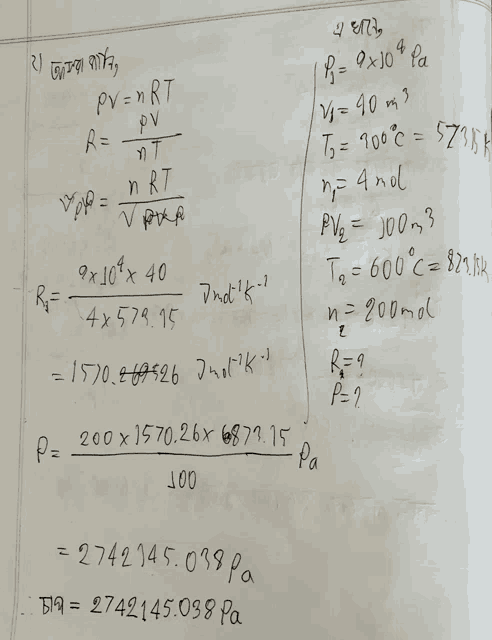 ২) আমরা জানি,
PV = nRT
R = PV / nT
P = nRT / V
R₁ = 9×10⁴×40 / 4×573.15 Jmol⁻¹K⁻¹
= 1570.26 Jmol⁻¹K⁻¹
P = 200×1570.26×873.15 / 100 Pa
= 2742145.038 Pa
চাপ = 2742145.038 Pa
এখানে
P₁ = 9×10⁴ Pa
V₁ = 40 m³
T₁ = 300°C = 573.15K
n₁ = 4 mol
V₂ = 100 m³
T₂ = 600°C = 873.15K
n₂ = 200 mol
R₁ = ?
P = ?